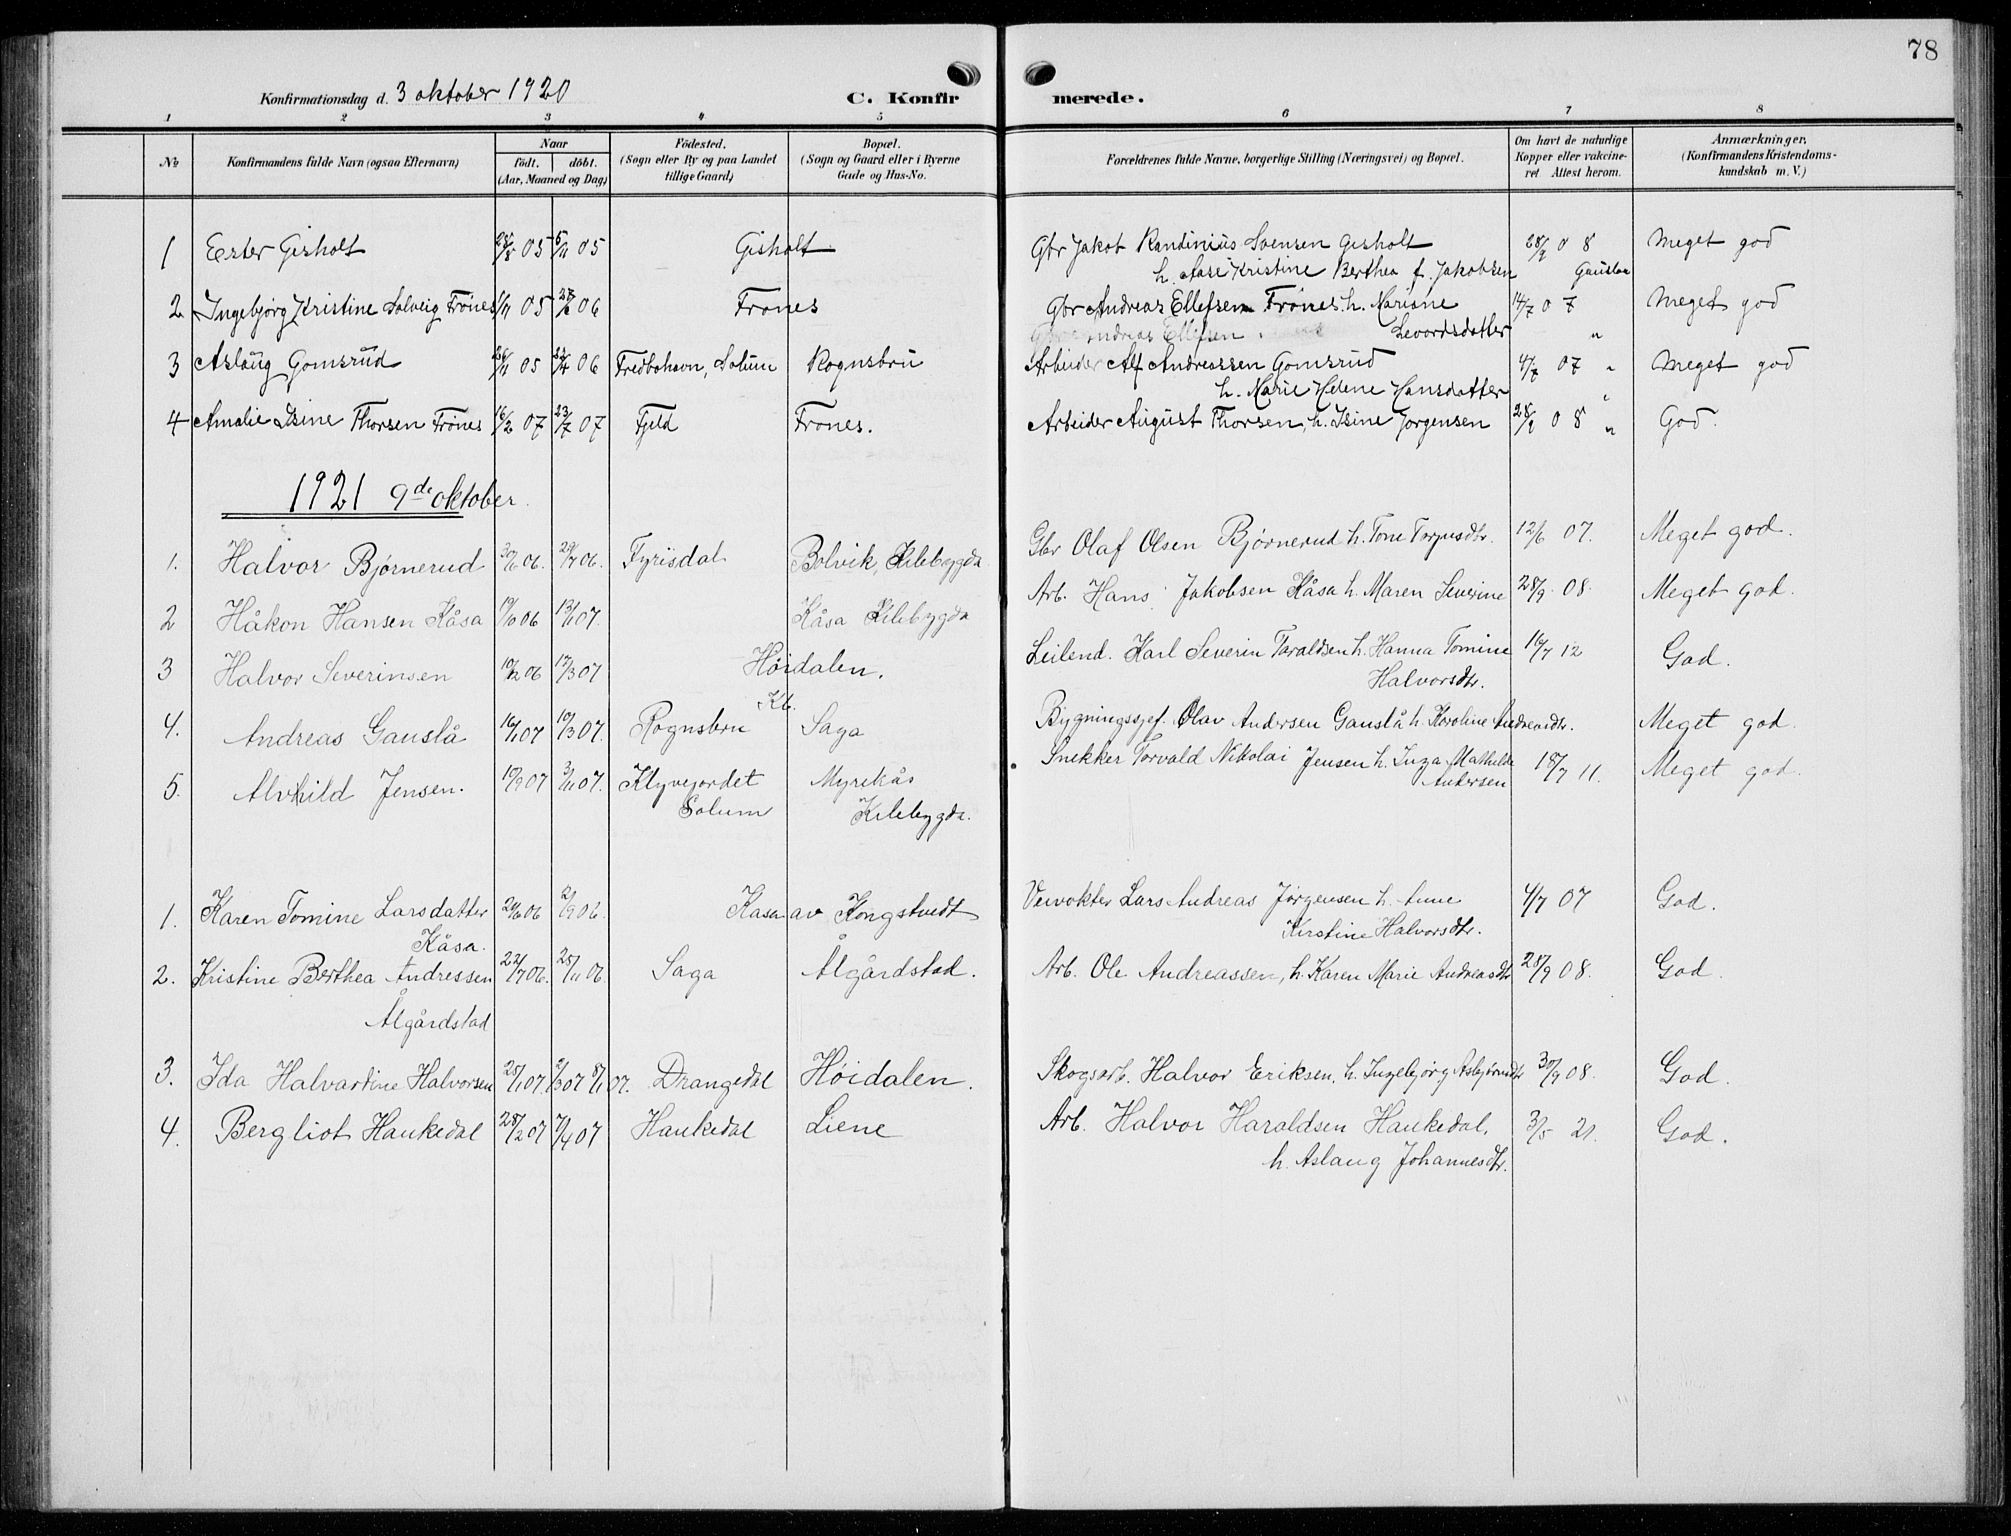 78
Konfirmationsdag d. 3 oktober 1920 C. Konfirmerede.
1 2 3 4 5 6 7 8
No Konfirmandens fulde Navn (ogsaa Efternavn) Naar födt. döbt. (Aar, Maaned og Dag) Födested. (Sogn eller By og paa Landet tillige Gaard) Bopæl. (Sogn og Gaard eller i Byerne Gade og Hus-No. Forældrenes fulde Navne, borgerlige Stilling (Næringsvei) og Bopæl. Om havt de naturlige Kopper eller vakcineret Attest herom. Anmærkninger. (Konfirmandens Kristendomskundskab m. V.)
1 Ester Gisholt 05 5/11 05 Gisholt Gbr Jakob Randinius Svensen Gisholt 28/9 08 Meget god
h. Aase Kristine Berthea f. Jakobsen Gauslaa
2 Ingebjörg Kristine Solveig Frönes 05 06 Frönes Gbr Andreas Ellefsen Frönes h. Mariane 14/7 07 Meget god
Andreas Ellefsen Levordsdatter "
3 Aslaug Gomsrud 05 06 Fredbohavn, Solum Rognsbru Arbeider Alf Andreassen Gomsrud 4/7 07 " Meget god
h. Marie Helene Hansdatter
4 Amalie Isine Thorsen Frönes 16/2 07 23/7 07 Fjeld Frönes. Arbeider August Thorsen, h. Isine Jorgensen 28/9 08 " God.
1921 9de oktober.
1. Halvor Bjørnerud 30/6 06. 29/7 06. Fyrisdal Bolvik, Kilebygda Gbr Olaf Olsen Bjørnerud h. Tone Torjusdtr. 12/6 07. Meget god.
2 Håkon Hansen Kåsa 06 13/1 07. Kåsa Kilebygda Arb. Hans Jakobsen Kåsa h. Maren Severine 28/9 08. Meget god.
3 Halvor Severinsen 06 17/3 07 Høidalen. Leilend. Karl Severin Taraldsen h. Hanna Tomine 16/7 12 God.
Halvorsdtr.
Kb.
4. Andreas Gauslå 16/1 07 10/3 07. Rognsbru Saga Bygningssjef. Olav Andersen Gauslå h. Karoline Andreasdtr. Meget god.
5. Alvhild Jensen. 07 3/11 07. Klyvejordet Myrekås Snekker Torvald Nikolai Jensen h. Inga Mathilde 18/7 11. Meget god.
Solum Kilebygda. Andersen
1. Karen Tomine Larsdatter 06 2/9 06. Kåsa av Kongstvedt Veivokter Lars Andreas Jørgensen h. Anne 4/7 07 God.
Kåsa. Kirstine Halvorsdtr.
2. Kristine Berthea Andressen 22/7 06. 25/11 06. Saga Ålgårdstad. Arb. Ole Andreassen, h. Karen Marie Andreasdtr 28/9 08. God.
Ålgårdstad
3. Ida Halvardine Halvorsen 25/1 07. 07 07. Drangedal Høidalen. Skogsarb. Halvor Eriksen, h. Ingebjørg Asbjørnsdtr 30/9 08. God.
4. Bergliot Haukedal 28/2 07 7/4 07 Haukedal Liene Arb. Halvor Haraldsen Haukedal, 3/5 21. God.
h. Aslaug Johannesdtr.